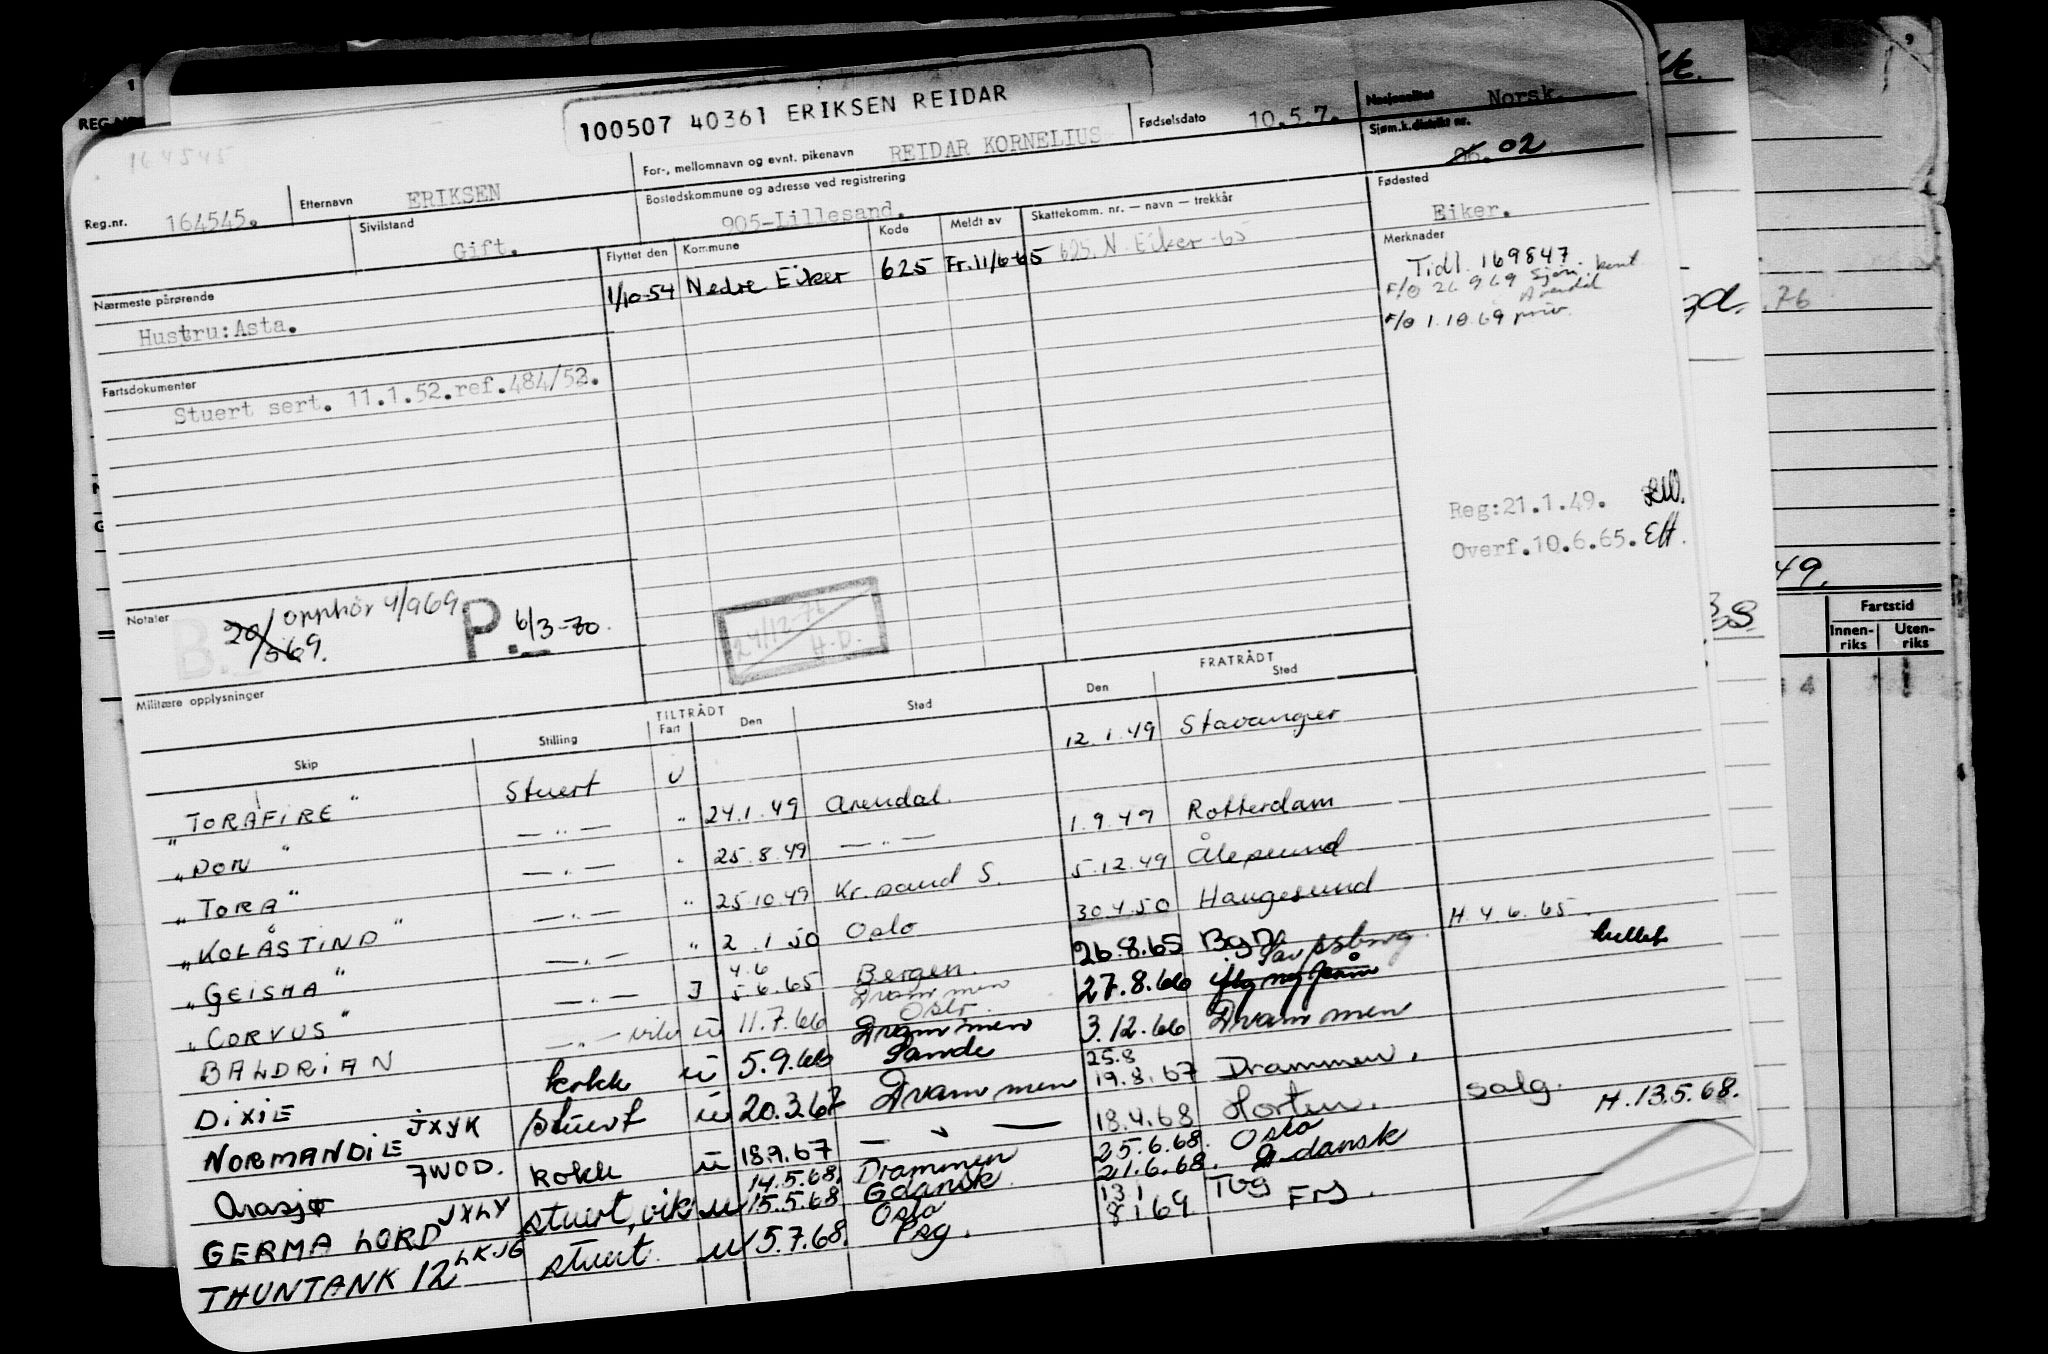 100507 40361 ERIKSEN REIDAR
164545
Reg.nr. 164545. Etternavn ERIKSEN For-, mellomnavn og evnt. pikenavn REIDAR KORNELIUS Fødselsdato 10.5.7. Nasjonalitet Norsk.
Sjøm.k.distrikt nr. 02
Sivilstand Gift. Bostedskommune og adresse ved registrering 905-Lillesand. Fødested Eiker.
Nærmeste pårørende Flyttet den Kommune Kode Meldt av Skattekomm. nr. — navn — trekkår Merknader
Hustru: Asta. 1/10-54 Nedre Eiker 625 Fr. 11/6-65 625. N. Eiker -65
Tidl. 169847
F/O 26 9 69 Sjøm. kont
Arendal
F/O 1.10.69 priv.
Fartsdokumenter
Stuert sert. 11.1.52.ref.484/52.
Reg:21.1.49.
Overf.10.6.65. EH.
Notater B. 20/569. opphör 4/969 P. 6/3-70.
24/12-76
H.D.
Militære opplysninger
Skip Stilling TILTRÅDT Fart Den Sted FRATRÅDT Den Sted
"TORAFIRE" Stuert U 12.1.49 Stavanger
"DON" — " — " 24.1.49 Arendal. 1.9.49 Rotterdam
"TORA" — " — " 25.8.49 — " — 5.12.49 Ålesund
"KOLÅSTIND" — " — " 25.10.49 Kr.sand S. 30.4.50 Haugesund
"GEISHA" — " — " 2.1.50 Oslo
"CORVUS" — " — I 4.6 5.6.65 Bergen. 26.8.65 Bgn H. 4.6.65.
BALDRIAN — " — vik ü 11.7.66 Drammen Oslo 27.8.66 Sarpsborg
DIXIE kokk ü 5.9.66 Drammen 3.12.66 Drammen
NORMANDIE JXYK stuert ü 20.3.67 Sande 25.8 19.8.67 Drammen.
Arasjø JWOD. kokk ü 18.9.67 Drammen 18.4.68 Horten. salg.
GERMA LORD JXLY stuert, vik u 14.5.68. 15.5.68 Drammen Gdansk 25.6.68. 21.6.68. Oslo Gdansk H. 13.5.68.
THUNTANK 12 LKJG stuert. u 5.7.68. Oslo Psg. 13 1 8 1 69 Tbg
REG.NR.
1
9
76
49.
Fartstid
Innen-riks Uten-riks